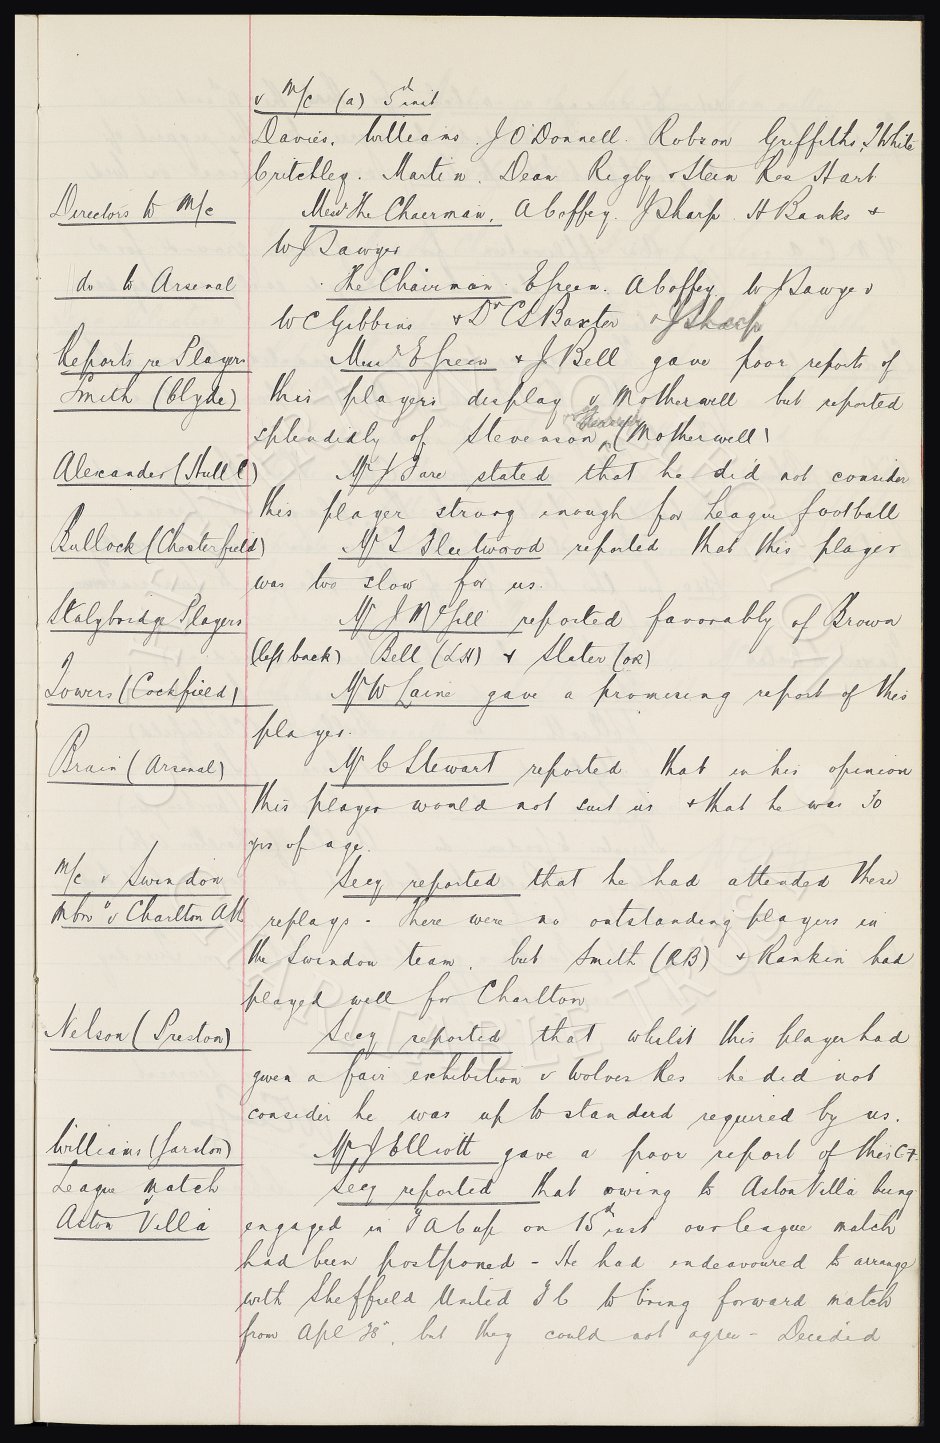 v M/C (a) 5th inst
Davies. Williams. J O'Donnell. Robson Griffiths, T White
Critchley. Martin. Dean Rigby & Stein Res Hart
Directors to M/C Messrs The Chairman. A Coffey. J Sharp. H Banks &
W J Sawyer
do to Arsenal The Chairman. E Green. A Coffey W J Sawyer
W C Gibbins & Dr C S Baxter & J Sharp
Reports re Players Messrs E Green & J Bell gave poor reports of
Smith (Clyde) this players display v Motherwell but reported
splendidly of Stevenson (Motherwell)
Alexander (Hull C) Mr J Fare stated that he did not consider
this player strong enough for League football
Bullock (Chesterfield) Mr T Fleetwood reported that this player
was too slow for us.
Stalybridge Players Mr J McGill reported favorably of Brown
(left back) Bell (LH) & Slater (OR)
Towers (Cockfield) Mr W Caine gave a promising report of this
player.
Brain (Arsenal) Mr C Stewart reported that in his opinion
this player would not suit us & that he was 30
yrs of age.
M/C v Swindon Secy reported that he had attended these
Mbro' v Charlton Ath replays - There were no outstanding players in
the Swindon team. but Smith (RB) & Rankin had
played well for Charlton
Nelson (Preston) Secy reported that whilst this player had
given a fair exhibition v Wolves Res he did not
consider he was up to standard required by us.
Williams (Garston) Mr J Elliott gave a poor report of this CF.
League Match Secy reported that owing to Aston Villa being
Aston Villa engaged in F A Cup on 15th inst our league match
had been postponed - He had endeavoured to arrange
with Sheffield United F C to bring forward match
from Apl 18th, but they could not agree - Decided